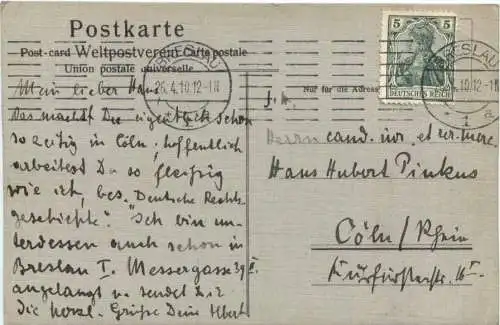 Postkarte
Post-card Weltpostverein Carte postale
Union postale universelle
Nur für die Adresse
5 5
DEUTSCHES REICH
BRESLAU
26.4.10.12-1N
1
BRESLAU
4.10.12-1N
1 a
Mein lieber Hans
Was machst Du eigentlich schon
so zeitig in Cöln, hoffentlich
arbeitest Du so fleissig
wie ich, bes. "Deutsche Rechts-
geschichte". Ich bin un-
terdessen auch schon in
Breslau I. Messergasse 39 II.
angelangt u. sendet Dir
die herzl. Grüße Dein Albert
Herrn cand. iur. et rer. merc.
Hans Hubert Pinkus
Cöln/Rhein
Kurfürstenstr. 16 I